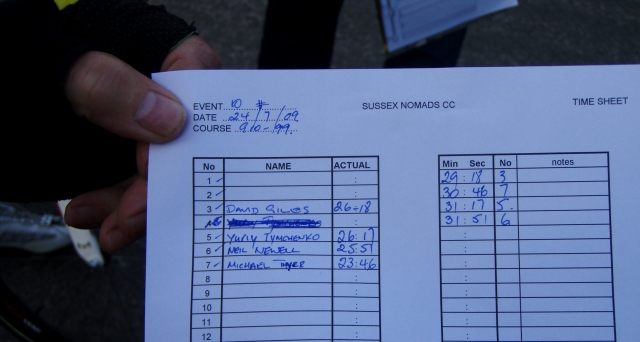 EVENT 10 #
SUSSEX NOMADS CC
TIME SHEET
DATE 24/7/09
COURSE
No NAME ACTUAL
1 ✓ :
2 ✓ :
3 ✓ DAVID GILES 26:18
:
5 ✓ YURIY TYMCHENKO 26:17
6 ✓ NEIL NEWELL 25:51
7 ✓ MICHAEL 23:46
8 :
9 :
10 :
11 :
12 :
Min Sec No notes
29:18 3
30:46 7
31:17 5
31:51 6